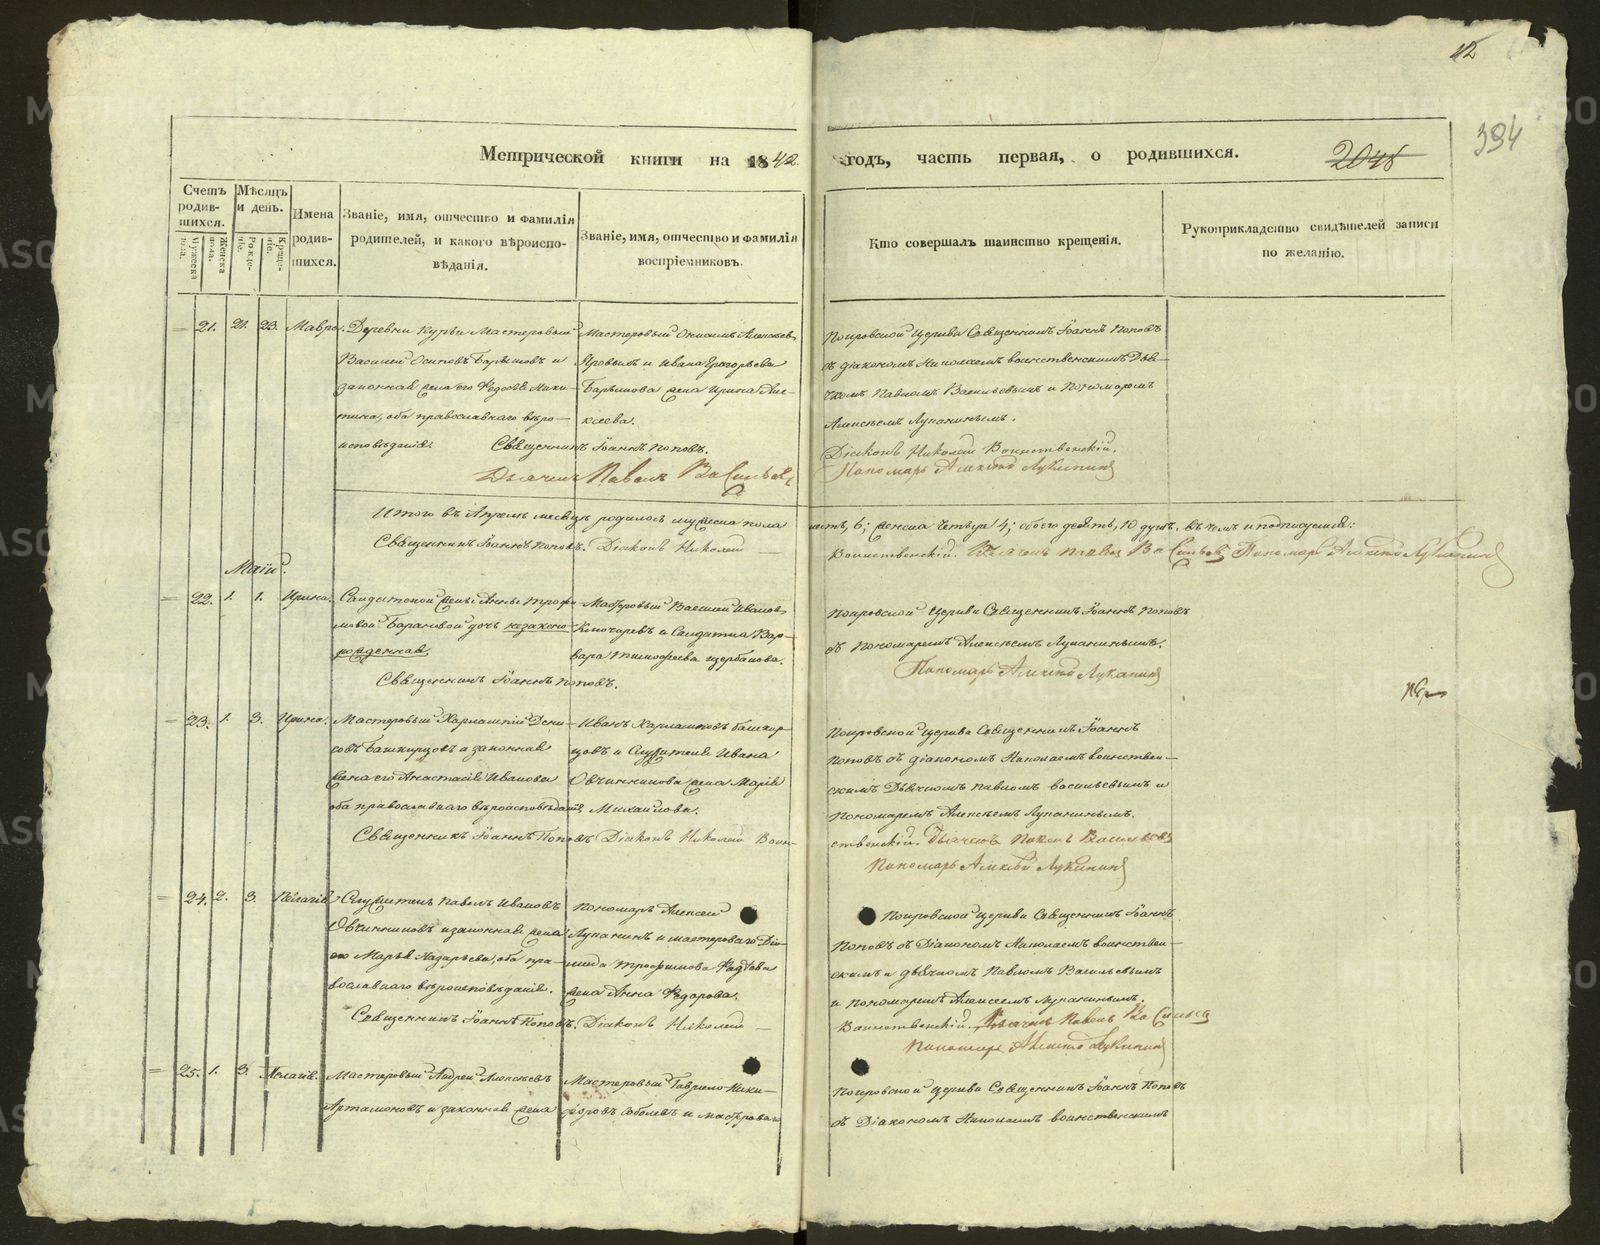 42
394
Метрической книги на 1842 годъ, часть первая, о родившихся.
2048
Счетъ родившихся.
Мужеска пола.
Женска пола.
Мѣсяцъ и день.
Рожденіе.
Крещеніе.
Имена родившихся.
Званіе, имя, отчество и фамилія родителей, и какого вѣроисповѣданія.
Званіе, имя, отчество и фамилія воспріемниковъ.
Кто совершалъ таинство крещенія.
Рукоприкладство свидѣтелей записи по желанію.
21. 21. 23. Мавра.
Деревни Курьи Мастеровый
Василей Осиповъ Барышовъ и
законная жена его Федосья Ники-
тина, оба православнаго вѣро-
исповѣданія.
Мастеровый Онисимъ Алексѣевъ
и Ивана Григорьева
Барышова жена Ирина Але-
ксеева.
Покровской Церкви Священникъ Іоаннъ Поповъ
съ діакономъ Николаемъ Воинственскимъ Дья-
чкомъ Павломъ Васильевымъ и Пономаремъ
Алексѣемъ Лукинымъ.
Священникъ Іоаннъ Поповъ.
Діаконъ Николай Воинственскій.
Дьячекъ Павелъ Васильевъ
Пономарь Алексѣй Лукинъ
Итого въ Апрѣлѣ месяцѣ родилось мужеска пола шесть, 6; женска четыре 4; обоего десять, 10 душъ. въ чемъ и подписуемся:
Священникъ Іоаннъ Поповъ. Діаконъ Николай Воинственскій. Дьячекъ Павелъ Васильевъ Пономарь Алексѣй
Маій.
22. 1. 1. Ирина.
Солдатской жены Анны Трофи-
мовой Барановой дочь незаконно-
рожденная.
Мастеровый Василей Ивановъ
Ключаревъ и Солдатка Вар-
вара Тимофеева Щербакова.
Покровской Церкви Священникъ Іоаннъ Поповъ
съ пономаремъ Алексѣемъ
Священникъ Іоаннъ Поповъ.
Пономарь Алексѣй
23. 1. 3. Ирина.
Мастеровый Харлампій Дени-
совъ Башкирцовъ и законная
жена его Анастасія Иванова
оба православнаго вѣроисповѣданія
Иванъ Харлампіевъ Башкир-
цовъ и Служителя Ивана
Овчинникова жена Марія
Михайлова.
Покровской Церкви Священникъ Іоаннъ
Поповъ съ діакономъ Николаемъ Воинствен-
скимъ Дьячкомъ Павломъ Васильевымъ и
Пономаремъ Алексѣемъ
Священникъ Іоаннъ Поповъ Діаконъ Николай Воин-
ственскій. Дьячекъ Павелъ Васильевъ
Пономарь Алексѣй
24. 2. 3. Пелагія
Служитель Павелъ Ивановъ
Овчинниковъ и законная жена
его Марья Назарьева, оба пра-
вославнаго вѣроисповѣданія.
Пономарь Алексѣй
и мастероваго Діо-
мида Трофимова
жена Анна Федорова.
Покровской Церкви Священникъ Іоаннъ
Поповъ съ Діакономъ Николаемъ Воинствен-
скимъ и дьячкомъ Павломъ Васильевымъ
и пономаремъ Алексѣемъ
Священникъ Іоаннъ Поповъ. Діаконъ Николай
Воинственскій. Дьячекъ Павелъ Васильевъ
Пономарь Алексѣй
25. 1. 3. Пелагія.
Мастеровый Андрей Алексѣевъ
Артамоновъ и законная жена
Мастеровый Гаврило Ники-
форовъ Соболевъ и мастероваго
Покровской Церкви Священникъ Іоаннъ Поповъ
съ Діакономъ Николаемъ Воинственскимъ
METRIKI.GASO-URAL.RU